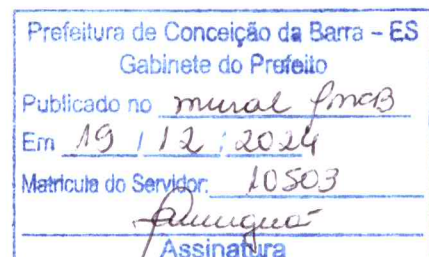 Prefeitura de Conceição da Barra – ES
Gabinete do Prefeito
Publicado no mural PMCB
Em 19 / 12 / 2024
Matricula do Servidor: 10503
Assinatura